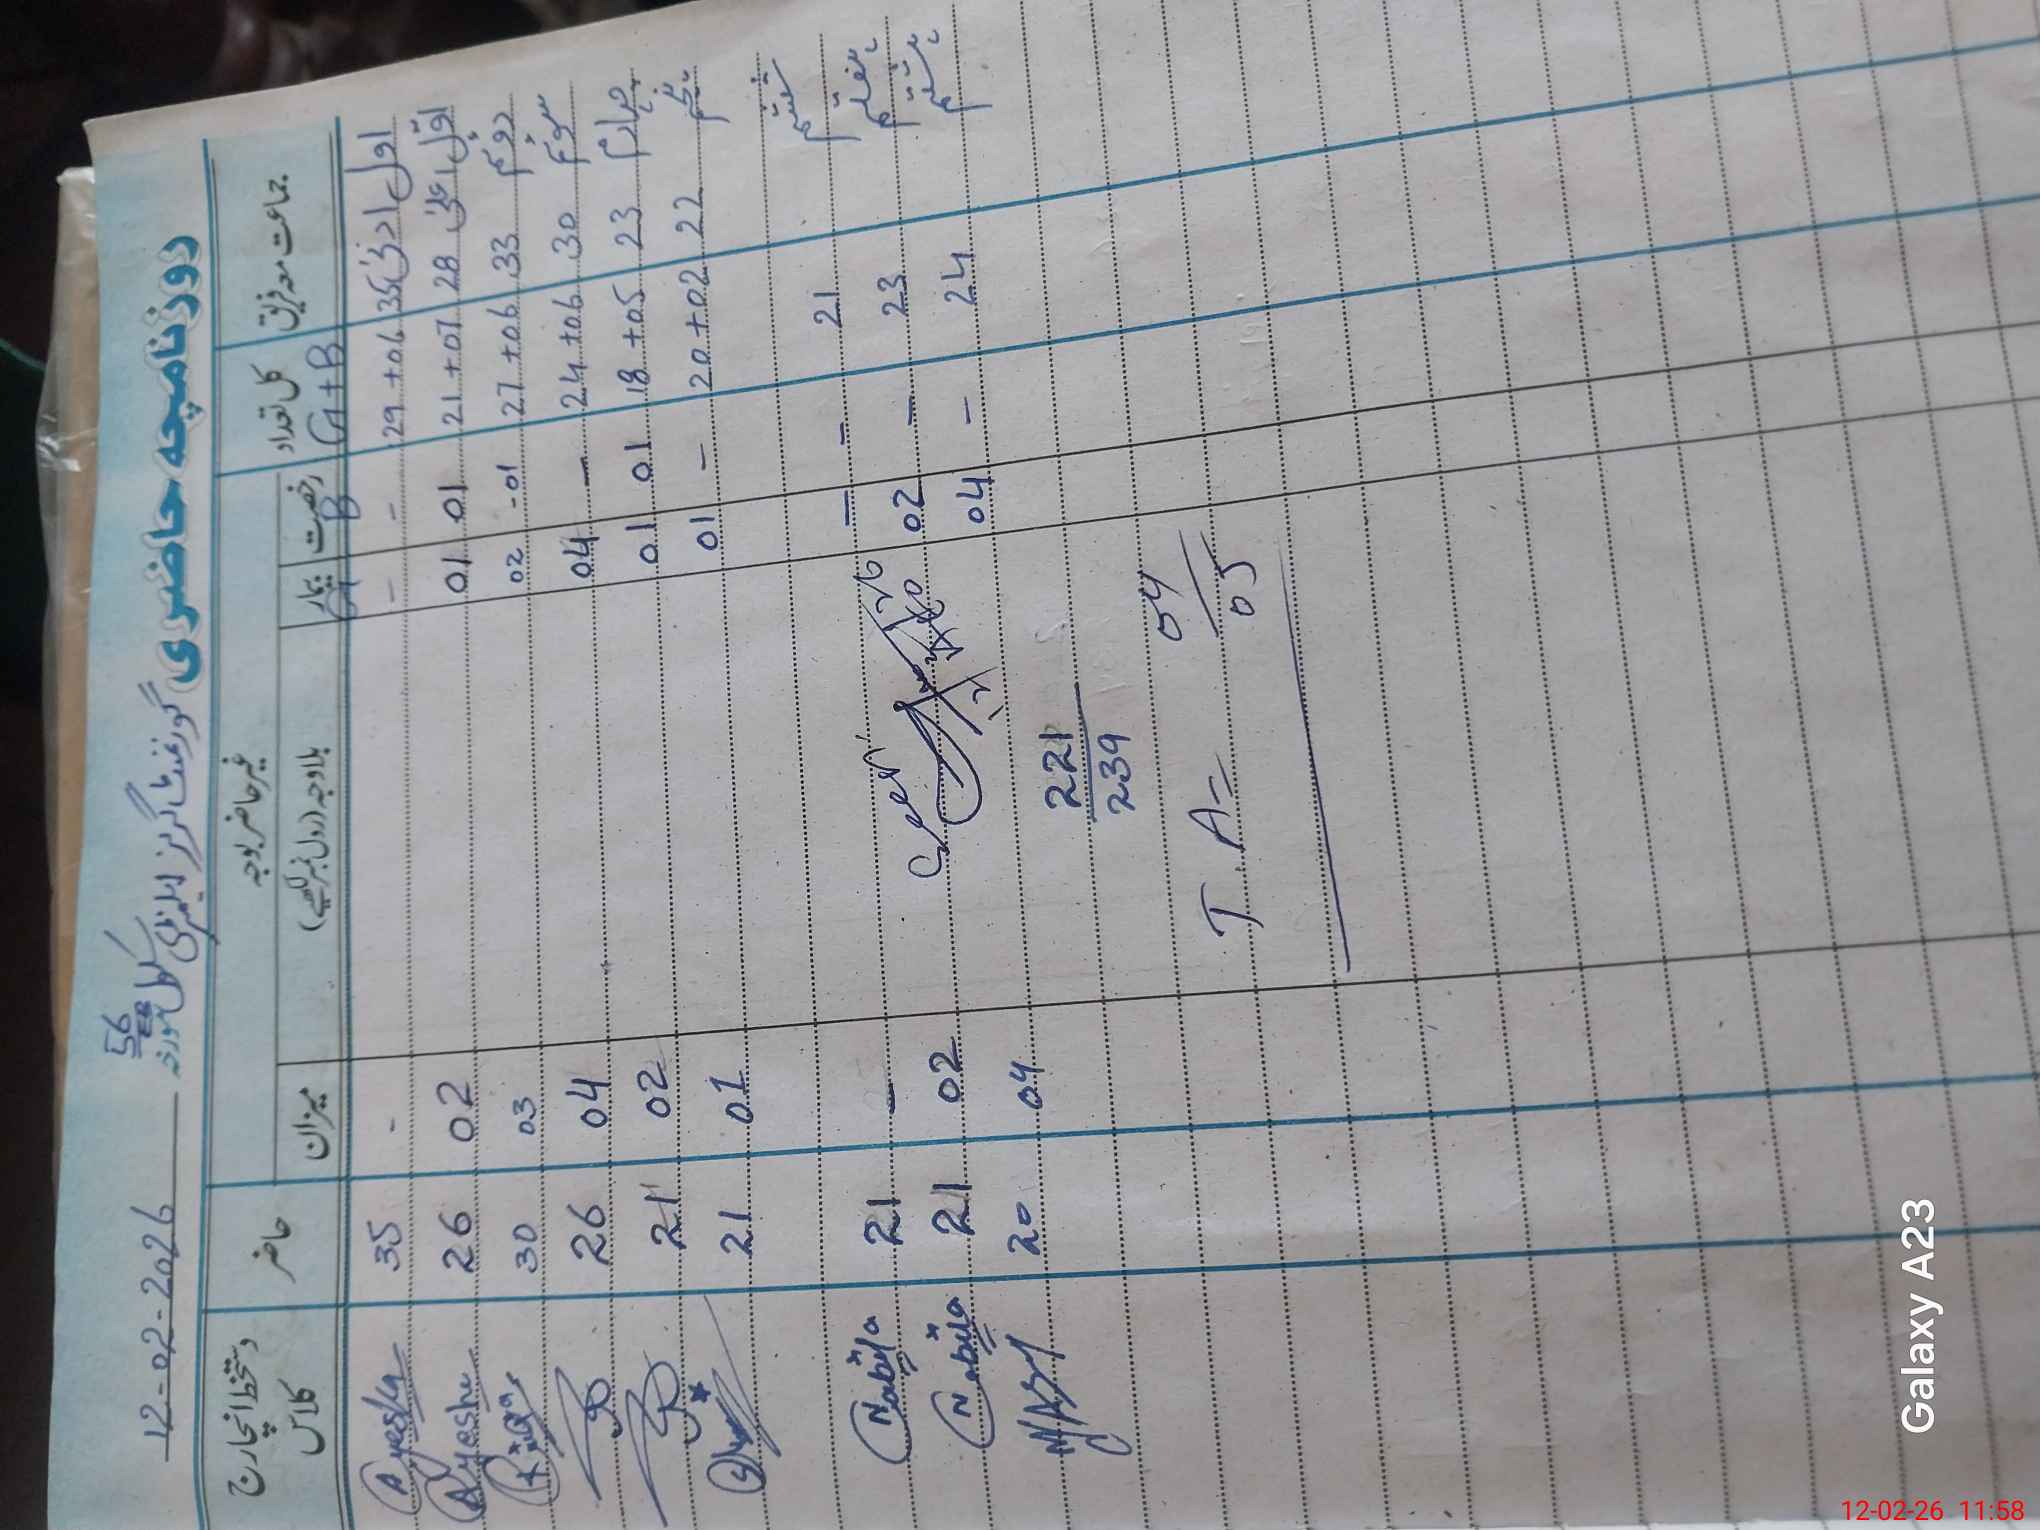 روزنامچہ حاضری
گورنمنٹ گرلز ایلیمنٹری سکول
56
EB
مورخہ 12-02-2026
جماعت معہ فریق کل تعداد غیر حاضر بوجہ حاضر دستخط انچارج کلاس
رخصت بیمار بلاوجہ (رول نمبر لکھیے) میزان
G+B B G
اول ادنیٰ 35 29+06 - - - 35 Ayesha
اول اعلیٰ 28 21+07 01 01 02 26 Ayesha
دوئم 33 27+06 -01 02 03 30
سوئم 30 24+06 - 04 04 26
چہارم 23 18+05 01 01 02 21
پنجم 22 20+02 - 01 01 21
ششم 21 - - - 21 Nabila
ہفتم 23 - 02 02 21 Nabila
ہشتم 24 - 04 04 20
221
239
T.A= 04
05
Galaxy A23
12-02-26 11:58